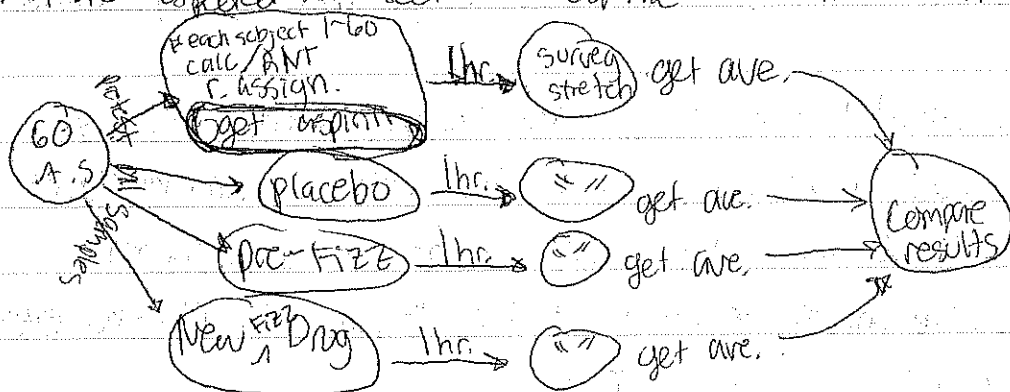 * each subject 1-60
calc/RNT
r. assign.
get aspirin
1hr.
survey
stretch
get ave.
60
A.S
pretest all samples
placebo
1hr.
" "
get ave.
Pre-Fizz
1hr.
" "
get ave.
New Fizz Drug
1hr.
" "
get ave.
compare
results